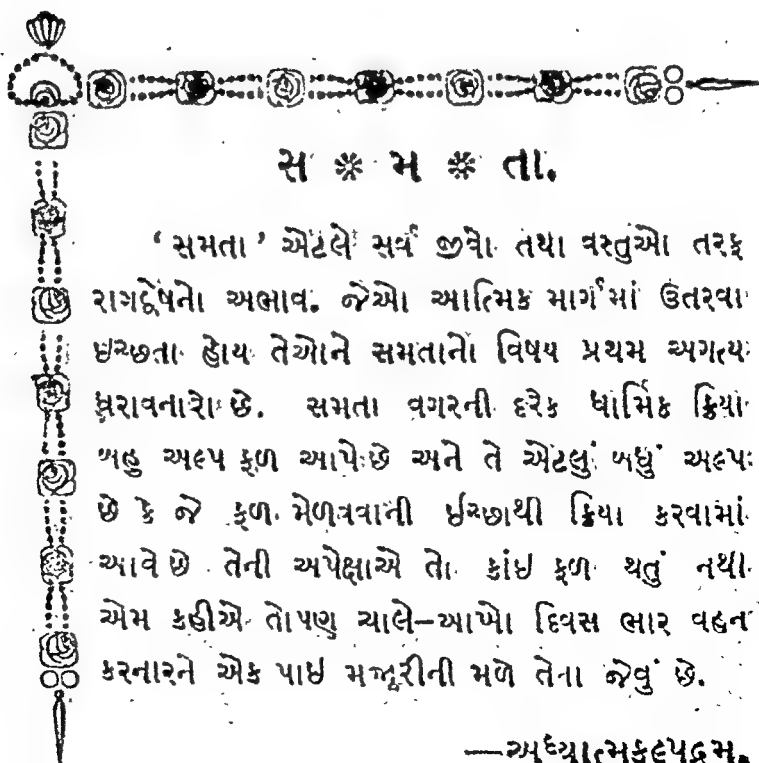 સ * મ * તા.
‘ સમતા ’ એટલે સર્વ જીવો તથા વસ્તુઓ તરફ
રાગદ્વેષનો અભાવ. જેઓ આત્મિક માર્ગમાં ઉતરવા
ઇચ્છતા હોય તેઓને સમતાનો વિષય પ્રથમ અગત્ય
ધરાવનારો છે. સમતા વગરની દરેક ધાર્મિક ક્રિયા
બહુ અલ્પ ફળ આપે છે અને તે એટલું બધું અલ્પ
છે કે જે ફળ મેળવવાની ઈચ્છાથી ક્રિયા કરવામાં
આવે છે તેની અપેક્ષાએ તો કાંઇ ફળ થતું નથી
એમ કહીએ તોપણ ચાલે–આખો દિવસ ભાર વહન
કરનારને એક પાઇ મજૂરીની મળે તેના જેવું છે.
—અધ્યાત્મકલ્પદ્રુમ.